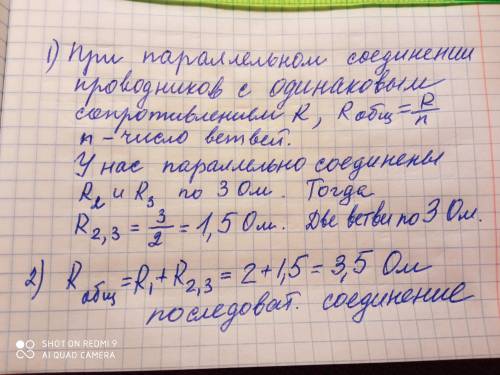 1) При параллельном соединении
проводников с одинаковым
сопротивлением R, Rобщ = R/n
n - число ветвей.
У нас параллельно соединены
R2 и R3 по 3 Ом. Тогда
R2,3 = 3/2 = 1,5 Ом. Две ветви по 3 Ом.
2) Rобщ = R1 + R2,3 = 2 + 1,5 = 3,5 Ом
последоват. соединение
SHOT ON REDMI 9
AI QUAD CAMERA